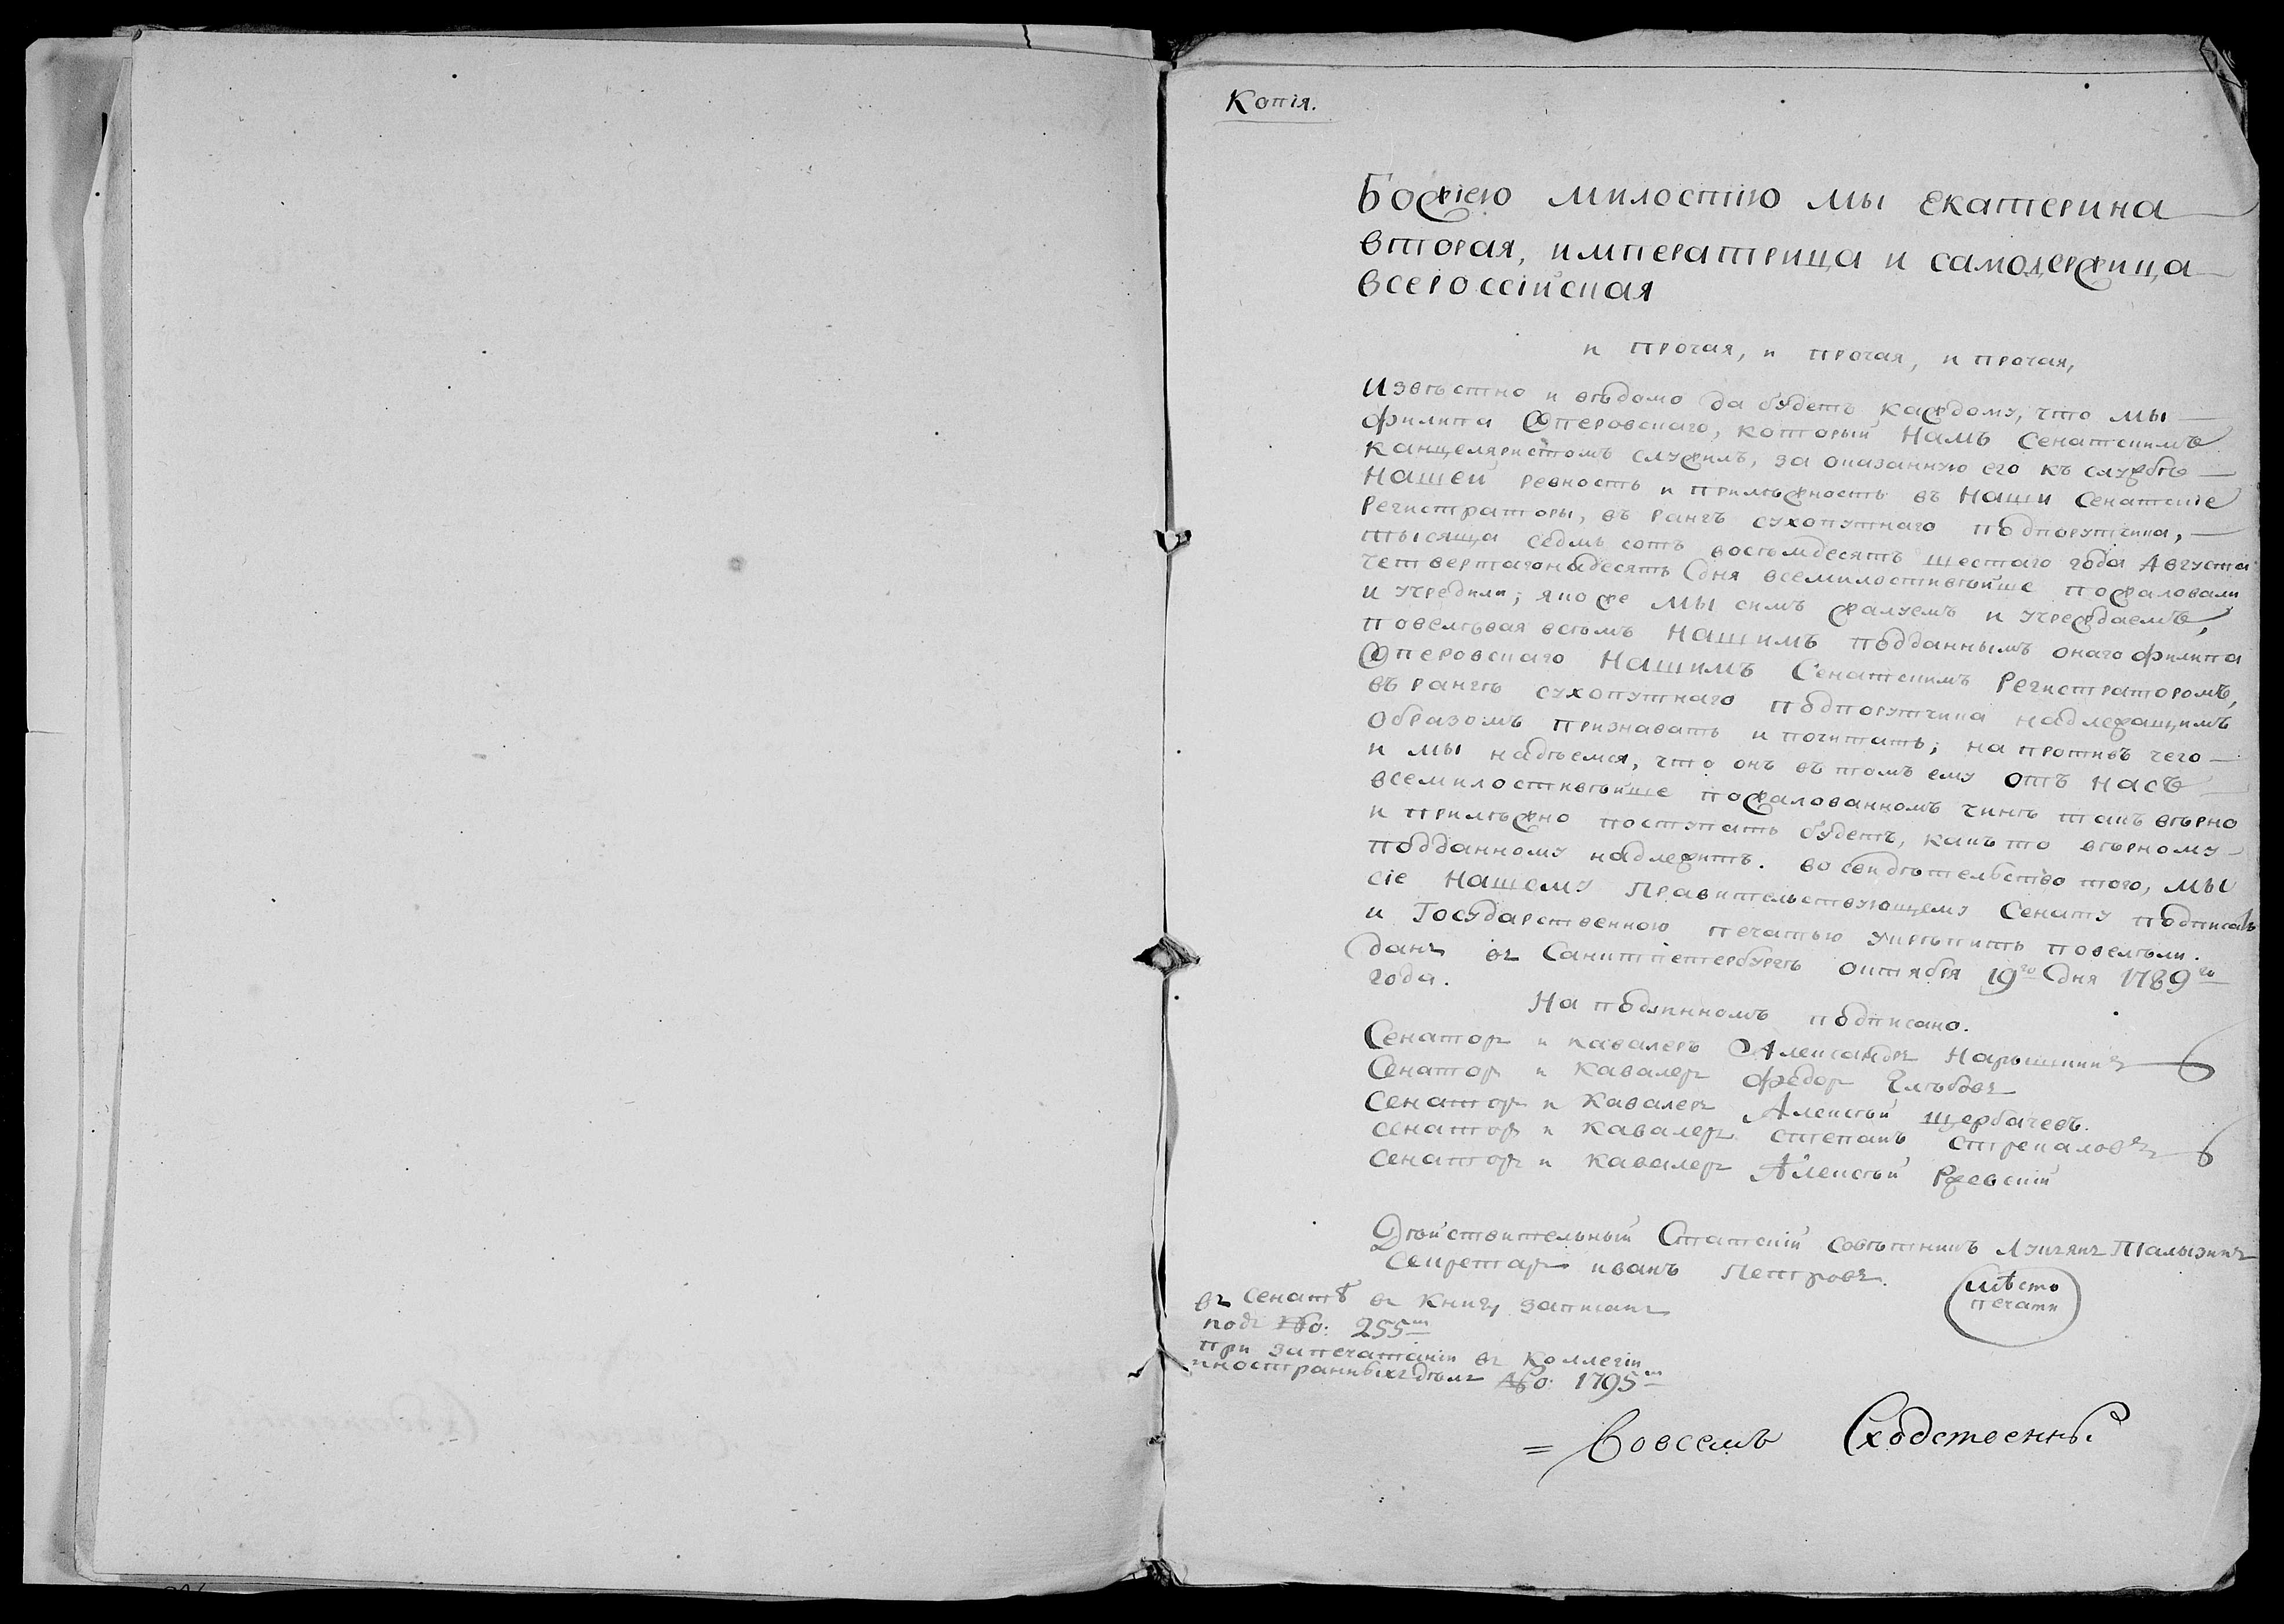 Копія.
Божіею милостію мы екатерина
вторая, императрица и самодержица
всероссійская
и прочая, и прочая, и прочая,
Извѣстно и вѣдомо да будетъ каждому, что мы
филипа Оперовскаго, который Намъ Сенатскимъ
канцеляристомъ служилъ, за оказанную его къ службѣ
Нашей ревность и прилѣжность въ Наши Сенатскіе
Регистраторы, въ рангъ сухопутнаго подпорутчика,
тысяща седмь сотъ восемьдесятъ шестаго года Августа
четвертагонадесять дня всемилостивѣйше пожаловали
и учредили; якоже мы симъ жалуемъ и учреждаемъ,
повелѣвая всѣмъ Нашимъ подданнымъ онаго филипа
Оперовскаго Нашимъ Сенатскимъ Регистраторомъ,
въ рангѣ сухопутнаго подпорутчика надлежащимъ
образомъ признавать и почитать; на противъ чего
и мы надѣемся, что онъ въ томъ ему отъ насъ
всемилостивѣйше пожалованномъ чинѣ такъ вѣрно
и прилѣжно поступать будетъ, какъ то вѣрному
подданному надлежитъ. во свидѣтельство того, мы
сіе Нашему Правительствующему Сенату подписать
и Государственною печатью укрѣпить повелѣли.
данъ въ Санктпетербургѣ октября 19го дня 1789го
года.
На подлинномъ подписано.
Сенаторъ и кавалеръ Александръ Нарышкинъ
Сенаторъ и кавалеръ федоръ
сенаторъ и кавалеръ Алексѣй Щербачевъ.
сенаторъ и кавалеръ степанъ стрекаловъ
сенаторъ и кавалеръ Алексѣй Ржевскій
Дѣйствительный Статскій совѣтникъ Лукянъ Талызинъ
секретарь иванъ Петровъ.
мѣсто
печати
въ сенатѣ въ книгу записанъ
подъ №: 255м
при запечатаніи въ Коллегіи
иностранныхъ дѣлъ №: 1795м
= Совсемъ Сходственны